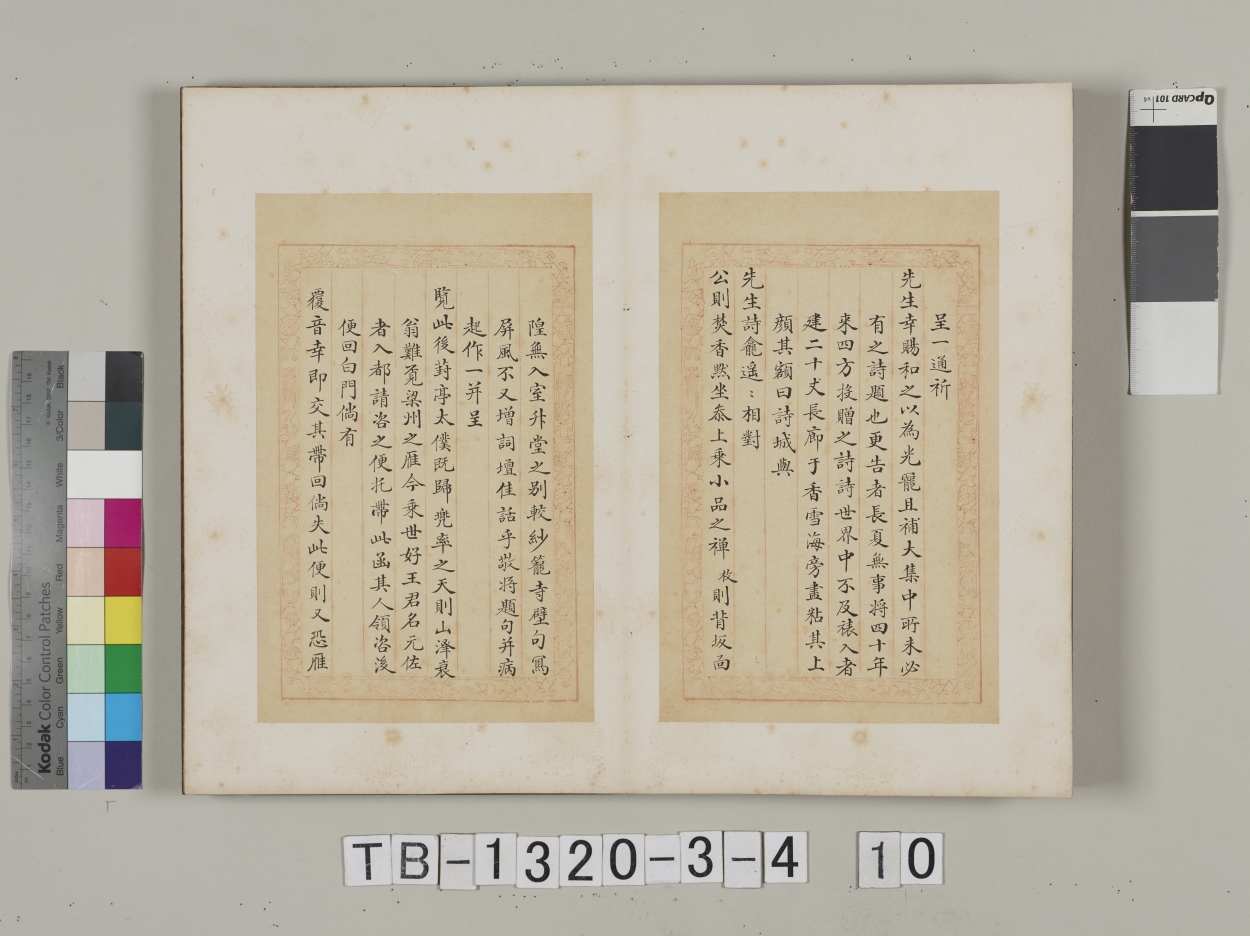 呈一通祈
先生幸賜和之以為光寵且補大集中所未必
有之詩題也更告者長夏無事將四十年
來四方投贈之詩詩世界中不及裱入者
建二十丈長廊于香雪海旁畫粘其上
顔其額曰詩城與
先生詩龕遥：相對
公則焚香默坐叅上乘小品之禅枚則背坂面
隍無入室升堂之别較紗籠寺壁句寫
屏風不又增詞壇佳話乎敬將題句并病
起作一并呈
覽此後葑亭太僕既歸兜率之天則山濤衰
翁難覓梁州之雁今乘世好王君名元佐
者入都請咨之便托帶此函其人領咨後
便回白門倘有
覆音幸即交其帶回倘失此便則又恐雁
QPCARD 101 v4
Kodak Color Control Patches
Blue
Cyan
Green
Yellow
Red
Magenta
White
3/Color
Black
TB-1320-3-4 10